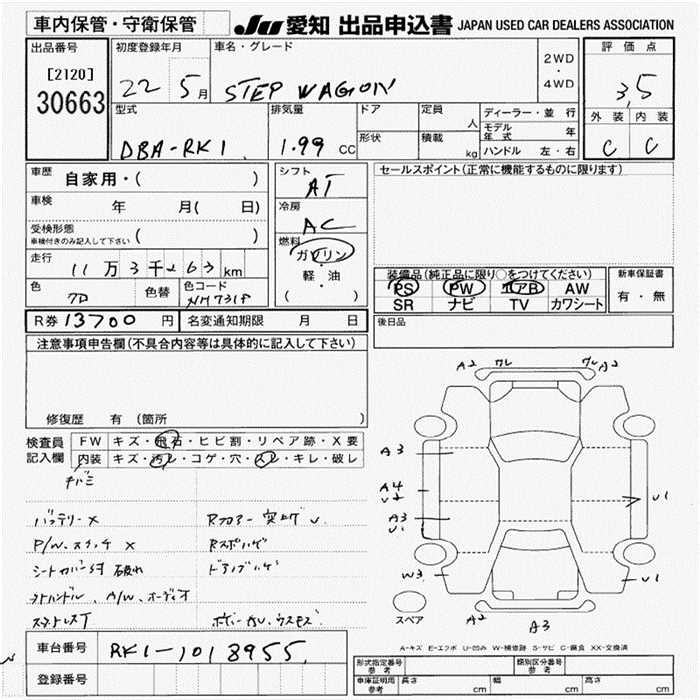 車内保管・守衛保管
JU 愛知 出品申込書 JAPAN USED CAR DEALERS ASSOCIATION
出品番号
[2120]
30663
初度登録年月
22 5月
車名・グレード
STEP WAGON
2WD
・
4WD
評価点
3,5
外装 内装
C C
型式
DBA-RK1
排気量
1.99 CC
ドア
形状
定員
人
積載
kg
ディーラー・並行
モデル年式 年
ハンドル 左・右
車歴
自家用・( )
車検
年 月( 日)
受検形態
車検付きのみ記入して下さい ( )
走行
11万3千263km
色
色替
色コード
NH731P
シフト
AT
冷房
AC
燃料
ガソリン
・
軽・油
( )
セールスポイント(正常に機能するものに限ります)
装備品(純正品に限り○をつけてください)
PS PW エアB AW
SR ナビ TV カワシート
新車保証書
有・無
後日品
R券 13700 円
名変通知期限 月 日
注意事項申告欄(不具合内容等は具体的に記入して下さい)
修復歴 有 (箇所 )
検査員
記入欄
FW キズ・飛石・ヒビ割・リペア跡・X要
内装 キズ・汚レ・コゲ・穴・スレ・キレ・破レ
バッテリーX
Rフロアー突上ゲ U
P/W.スイッチ X
シートカバー
破れ
A/W.オーディオ
A2 A2
A3
A4
U2
A3
U1
W3
U1
U1
A2
A3
スペア
A-キズ E-エクボ U-凹み W-補修跡 S-サビ C-腐食 XX-交換済
車台番号
RK1-1018955
登録番号
形式指定番号
参考
類別区分番号
参考
車庫証明用
参考
長さ cm
幅 cm
高さ cm